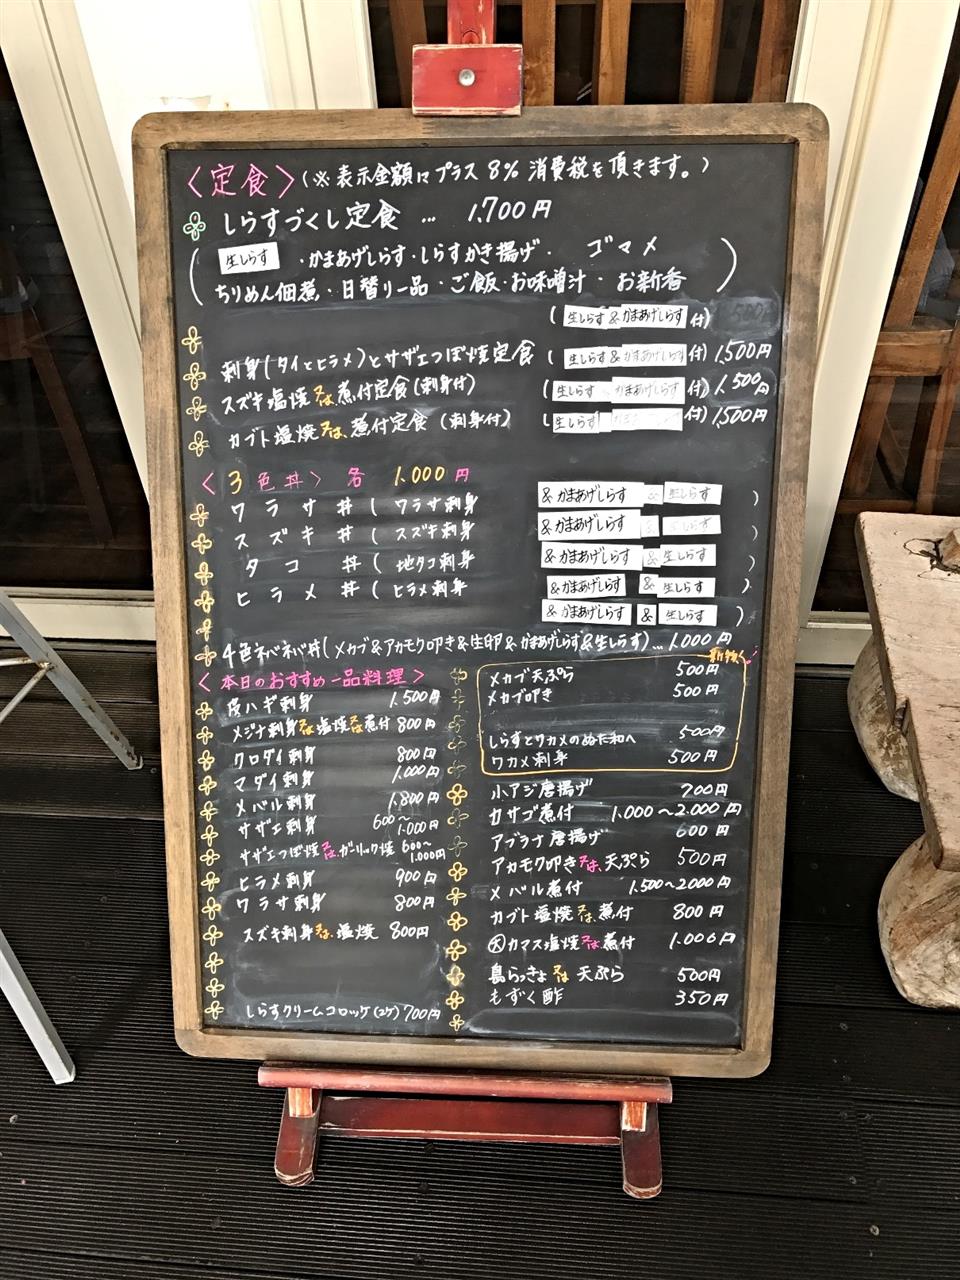 〈定食〉(※表示金額にプラス8%消費税を頂きます。)
しらすづくし定食 … 1,700円
(生しらす・かまあげしらす・しらすかき揚げ・ ゴマメ
ちりめん佃煮・日替り一品・ご飯・お味噌汁・お新香)
(生しらす&かまあげしらす付)
刺身(タイとヒラメ)とサザエつぼ焼定食(生しらす&かまあげしらす付)1,500円
スズキ塩焼又は煮付定食(刺身付)(生しらす かまあげしらす付)1,500円
カブト塩焼又は、煮付定食(刺身付)(生しらす かまあげしらす付)1,500円
〈3色丼〉各 1,000円
&かまあげしらす & 生しらす)
ワラサ丼(ワラサ刺身 &かまあげしらす & 生しらす
スズキ丼(スズキ刺身 &かまあげしらす & 生しらす
タコ丼(地タコ刺身 &かまあげしらす & 生しらす)
ヒラメ丼(ヒラメ刺身 &かまあげしらす & 生しらす)
4色ネバネバ丼(メカブ&アカモク叩き&生卵&かまあげしらす&生しらす)…1,000円
〈本日のおすすめ一品料理〉
皮ハギ刺身 1,500円
メジナ刺身又は塩焼又は煮付 800円
クロダイ刺身 800円
マダイ刺身 1,000円
メバル刺身 1,800円
サザエ刺身 600〜1,000円
サザエつぼ焼又は、ガーリック焼 600〜1,000円
ヒラメ刺身 900円
ワラサ刺身 800円
スズキ刺身又は、塩焼 800円
しらすクリームコロッケ(2ケ)700円
メカブ天ぷら 500円
メカブ叩き 500円
しらすとワカメのぬた和へ 500円
ワカメ刺身 500円
小アジ唐揚げ 700円
カサゴ煮付 1,000〜2,000円
アブラナ唐揚げ 600円
アカモク叩き又は、天ぷら 500円
メバル煮付 1,500〜2000円
カブト塩焼又は、煮付 800円
大カマス塩焼又は煮付 1,000円
島らっきょ又は天ぷら 500円
もずく酢 350円